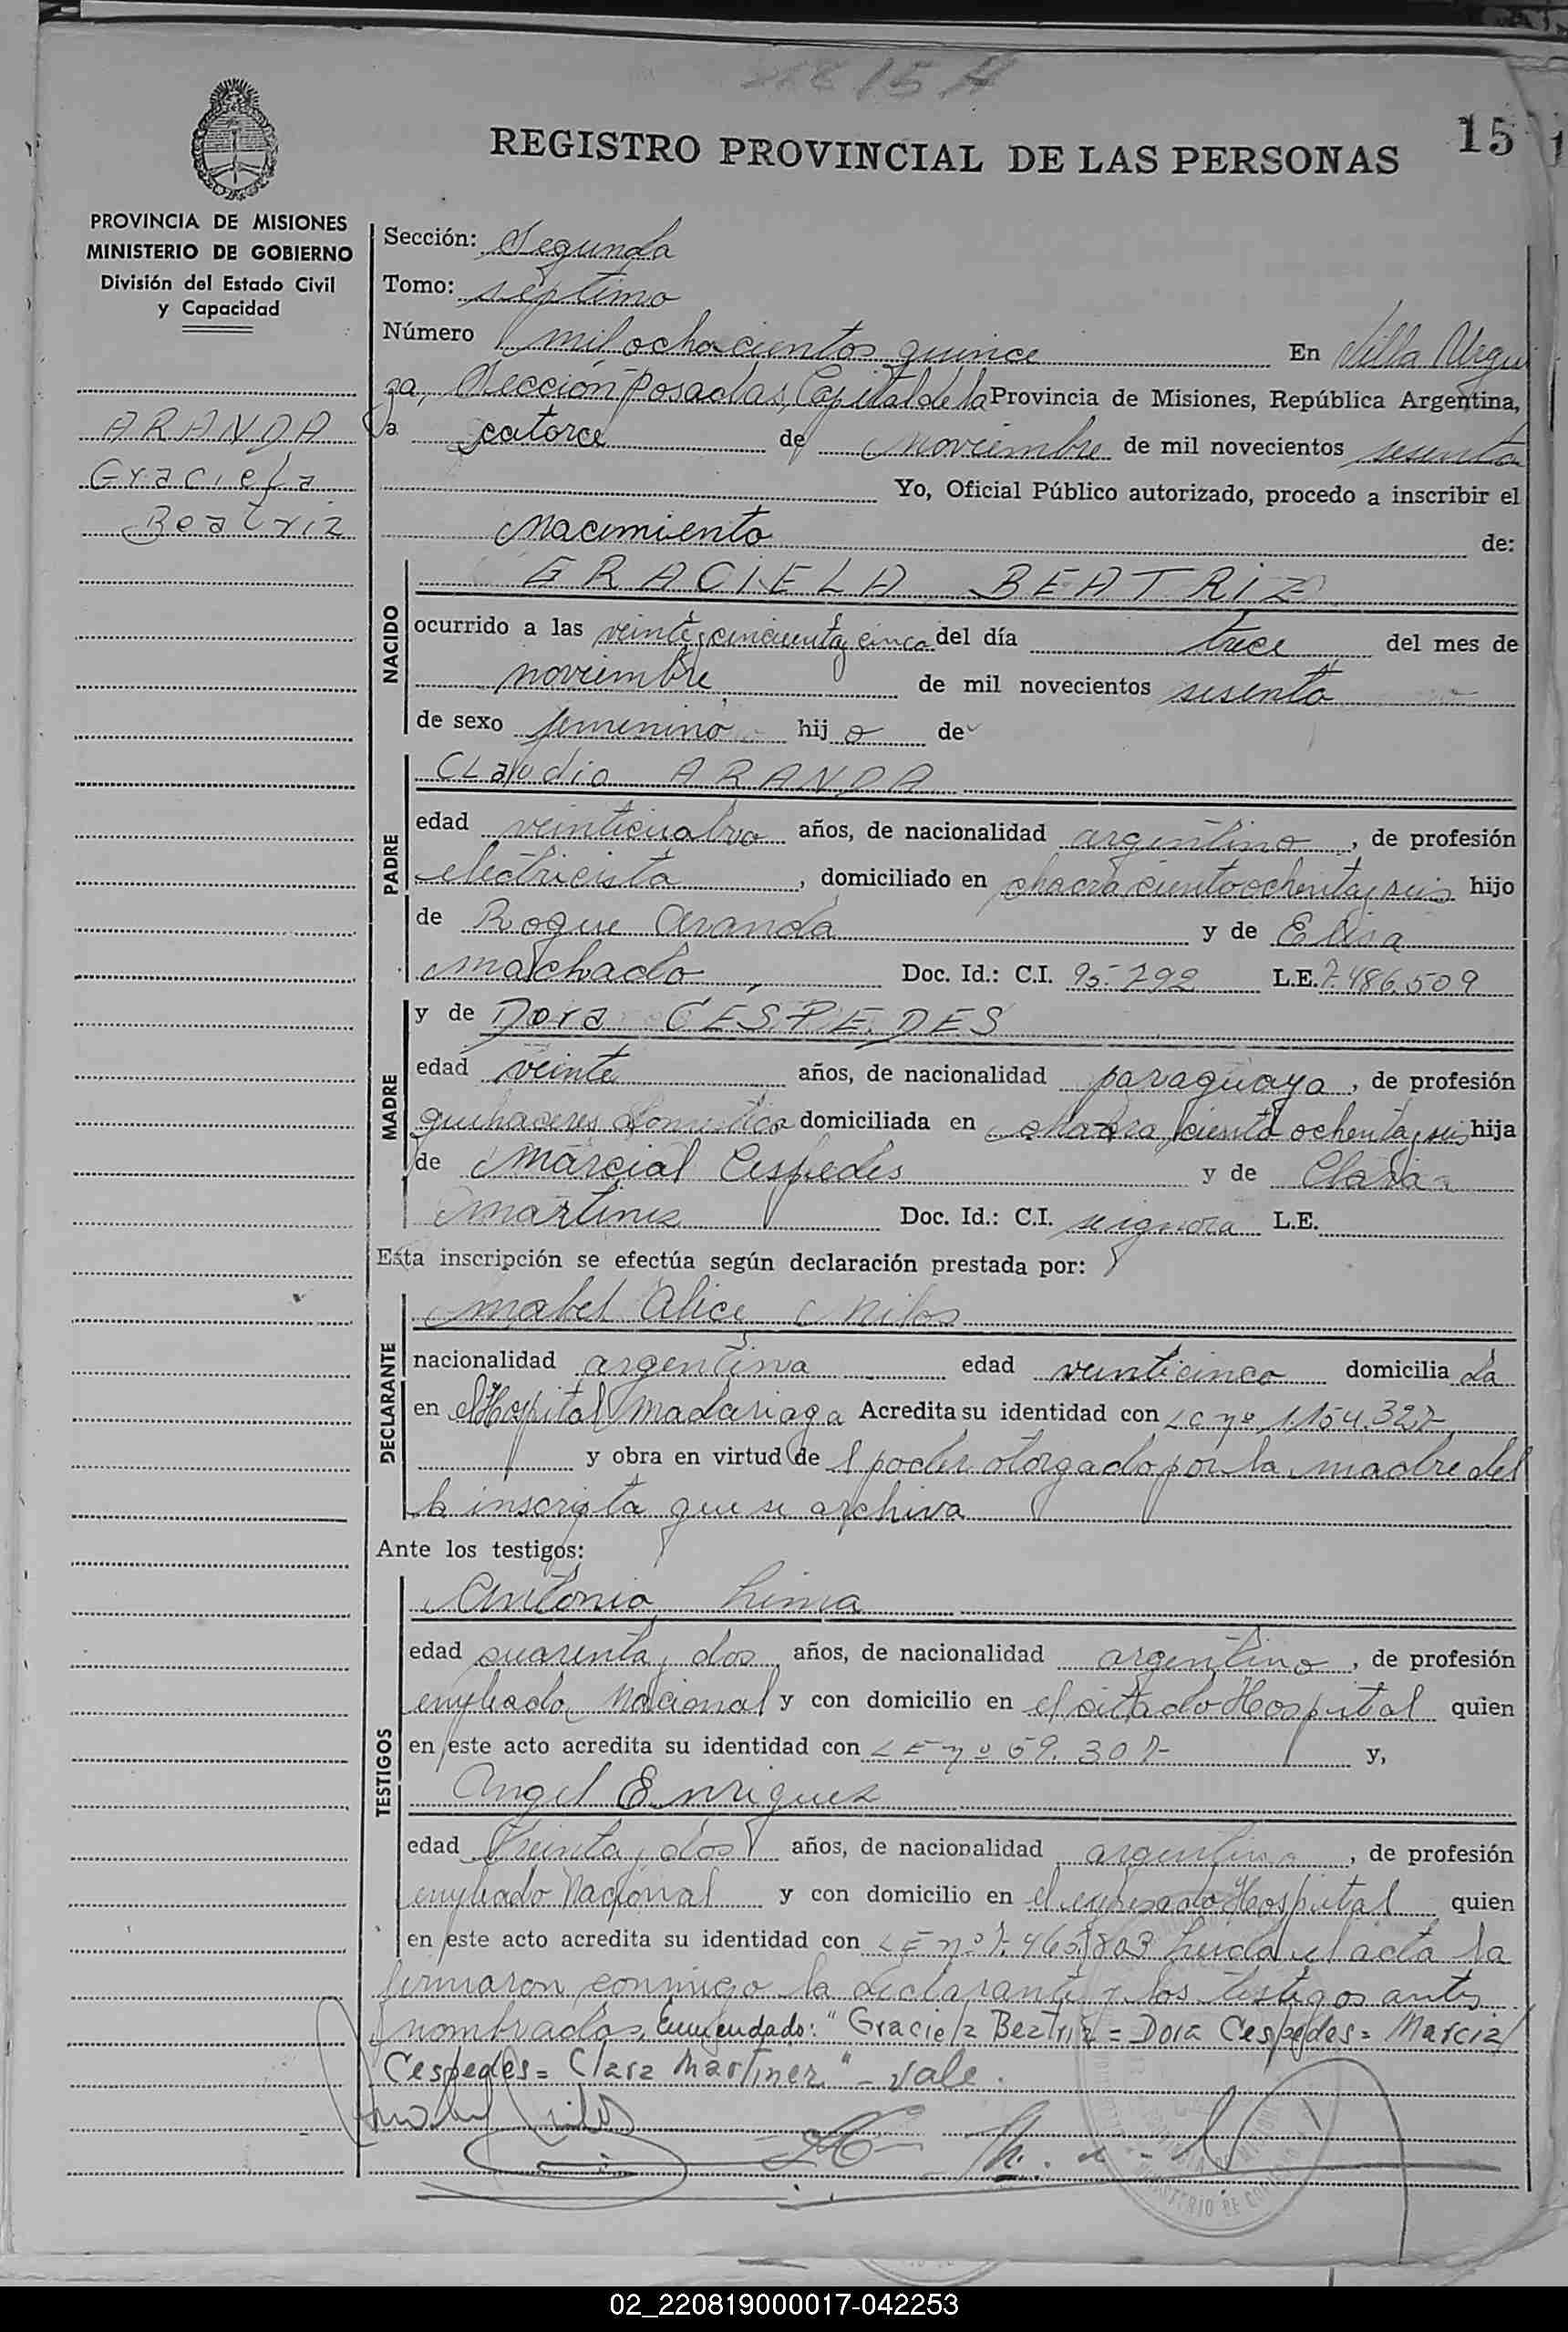 15 A
REGISTRO PROVINCIAL DE LAS PERSONAS
15
PROVINCIA DE MISIONES
MINISTERIO DE GOBIERNO
División del Estado Civil
y Capacidad
ARANDA
Graciela
Beatriz
Sección: Segunda
Tomo: séptimo
Número mil ochocientos quince En Villa Urqui
za, Sección Posadas, Capital de la Provincia de Misiones, República Argentina,
a catorce de noviembre de mil novecientos sesenta
Yo, Oficial Público autorizado, procedo a inscribir el
nacimiento de:
NACIDO
GRACIELA BEATRIZ
ocurrido a las veinte y cincuenta y cinco del día trece del mes de
noviembre de mil novecientos sesenta
de sexo femenino hij a de
PADRE
Claudio ARANDA
edad veinticuatro años, de nacionalidad argentino, de profesión
electricista, domiciliado en chacra ciento ochenta y seis hijo
de Roque Aranda y de Elisa
Machado Doc. Id.: C.I. 95.792 L.E. 7.486.509
MADRE
y de Dora CESPEDES
edad veinte años, de nacionalidad paraguaya, de profesión
quehaceres domésticos domiciliada en chacra ciento ochenta y seis hija
de Marcial Cespedes y de Clara
Martinez Doc. Id.: C.I. se ignora L.E.
Esta inscripción se efectúa según declaración prestada por:
DECLARANTE
Mabel Alice Nilos
nacionalidad argentina edad veinticinco domicilia da
en el Hospital Madariaga Acredita su identidad con LC nº 1.154.327
y obra en virtud de l poder otorgado por la madre de
la inscripta que se archiva
Ante los testigos:
TESTIGOS
Antonio Lima
edad cuarenta y dos años, de nacionalidad argentino, de profesión
empleado Nacional y con domicilio en el citado Hospital quien
en este acto acredita su identidad con LE nº 59.307 y,
Angel Enriquez
edad treinta y dos años, de nacionalidad argentino, de profesión
empleado Nacional y con domicilio en el expresado Hospital quien
en este acto acredita su identidad con LE nº 7.465.803 Leida el acta la
firmaron conmigo la declarante y los testigos antes
nombrados. Enmendado: "Graciela Beatriz = Dora Cespedes = Marcial
Cespedes = Clara Martinez" - vale.
02_220819000017-042253